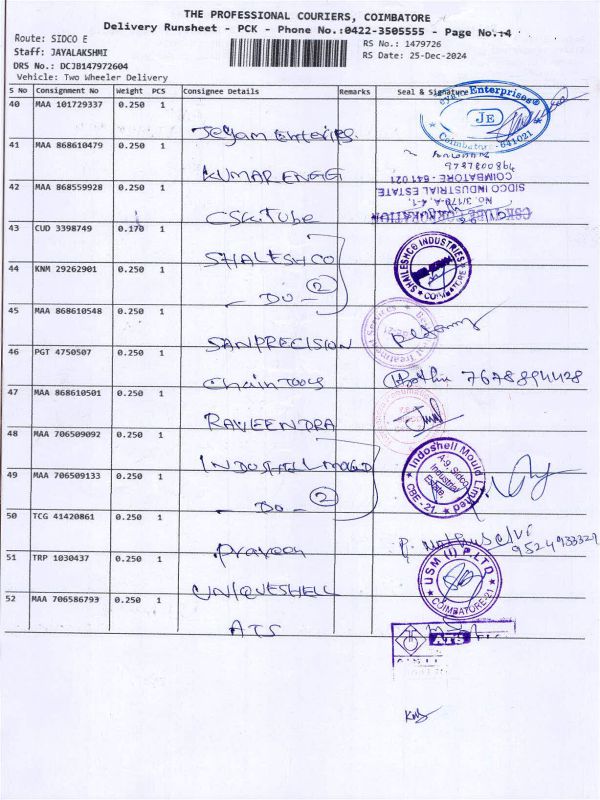 THE PROFESSIONAL COURIERS, COIMBATORE
Delivery Runsheet - PCK - Phone No.:0422-3505555 - Page No.:4
Route: SIDCO E
RS No.: 1479726
Staff: JAYALAKSHMI
RS Date: 25-Dec-2024
DRS No.: DCJB147972604
Vehicle: Two Wheeler Delivery
S No Consignment No Weight PCS Consignee Details Remarks Seal & Signature
40 MAA 101729337 0.250 1
Enterprises
JE
Coimbatore - 641021
41 MAA 868610479 0.250 1
KUMAR ENGG
COIMBATORE - 641 021
SIDCO INDUSTRIAL ESTATE
No. 3/178-A, 4-1,
42 MAA 868559928 0.250 1
CSK TUBE
43 CUD 3398749 0.170 1
SHAILESHCO
SHAILESHCO INDUSTRIES
COIMBATORE
44 KNM 29262901 0.250 1
- DO - 2
45 MAA 868610548 0.250 1
SAN PRECISION
46 PGT 4750507 0.250 1
Chain Tools
7678894428
47 MAA 868610501 0.250 1
RAVEENDRA
48 MAA 706509092 0.250 1
INDOSHELL MOULD
Indoshell Mould Limited
A-9, Sidco
Industrial
Estate,
CBE - 21.
49 MAA 706509133 0.250 1
- DO - 2
50 TCG 41420861 0.250 1
Praveen
9524933329
51 TRP 1030437 0.250 1
UNIQUESHELL
USM (I) P.LTD
COIMBATORE-21
52 MAA 706586793 0.250 1
ATS
ATS